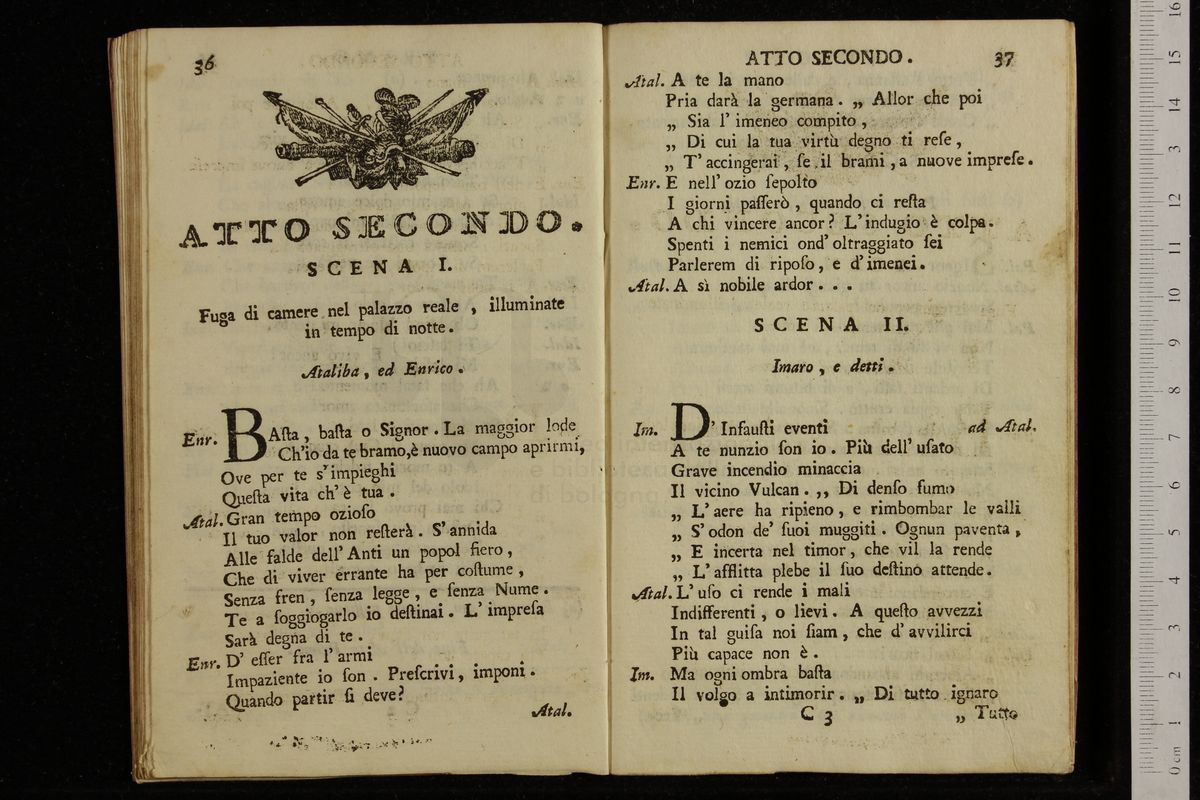 36
ATTO SECONDO.
SCENA I.
Fuga di camere nel palazzo reale , illuminate
in tempo di notte.
Ataliba, ed Enrico.
Enr. BAſta, baſta o Signor. La maggior lode
Ch'io da te bramo,è nuovo campo aprirmi,
Ove per te s'impieghi
Queſta vita ch'è tua.
Atal. Gran tempo ozioſo
Il tuo valor non reſterà. S'annida
Alle falde dell'Anti un popol fiero,
Che di viver errante ha per coſtume,
Senza fren, ſenza legge, e ſenza Nume.
Te a ſoggiogarlo io deſtinai. L'impreſa
Sarà degna di te.
Enr. D'eſſer fra l'armi
Impaziente io ſon. Preſcrivi, imponi.
Quando partir ſi deve?
Atal.
ATTO SECONDO. 37
Atal. A te la mano
Pria darà la germana. „ Allor che poi
„ Sia l'imeneo compito,
„ Di cui la tua virtù degno ti reſe,
„ T'accingerai, ſe il brami, a nuove impreſe.
Enr. E nell'ozio ſepolto
I giorni paſſerò, quando ci reſta
A chi vincere ancor? L'indugio è colpa.
Spenti i nemici ond'oltraggiato ſei
Parlerem di ripoſo, e d'imenei.
Atal. A sì nobile ardor...
SCENA II.
Imaro, e detti.
Im. D'Infauſti eventi ad Atal.
A te nunzio ſon io. Più dell'uſato
Grave incendio minaccia
Il vicino Vulcan. ,, Di denſo fumo
„ L'aere ha ripieno, e rimbombar le valli
„ S'odon de' ſuoi muggiti. Ognun paventa,
„ E incerta nel timor, che vil la rende
„ L'afflitta plebe il ſuo deſtino attende.
Atal. L'uſo ci rende i mali
Indifferenti, o lievi. A queſto avvezzi
In tal guiſa noi ſiam, che d'avvilirci
Più capace non è.
Im. Ma ogni ombra baſta
Il volgo a intimorir. „ Di tutto ignaro
C 3 „ Tutto